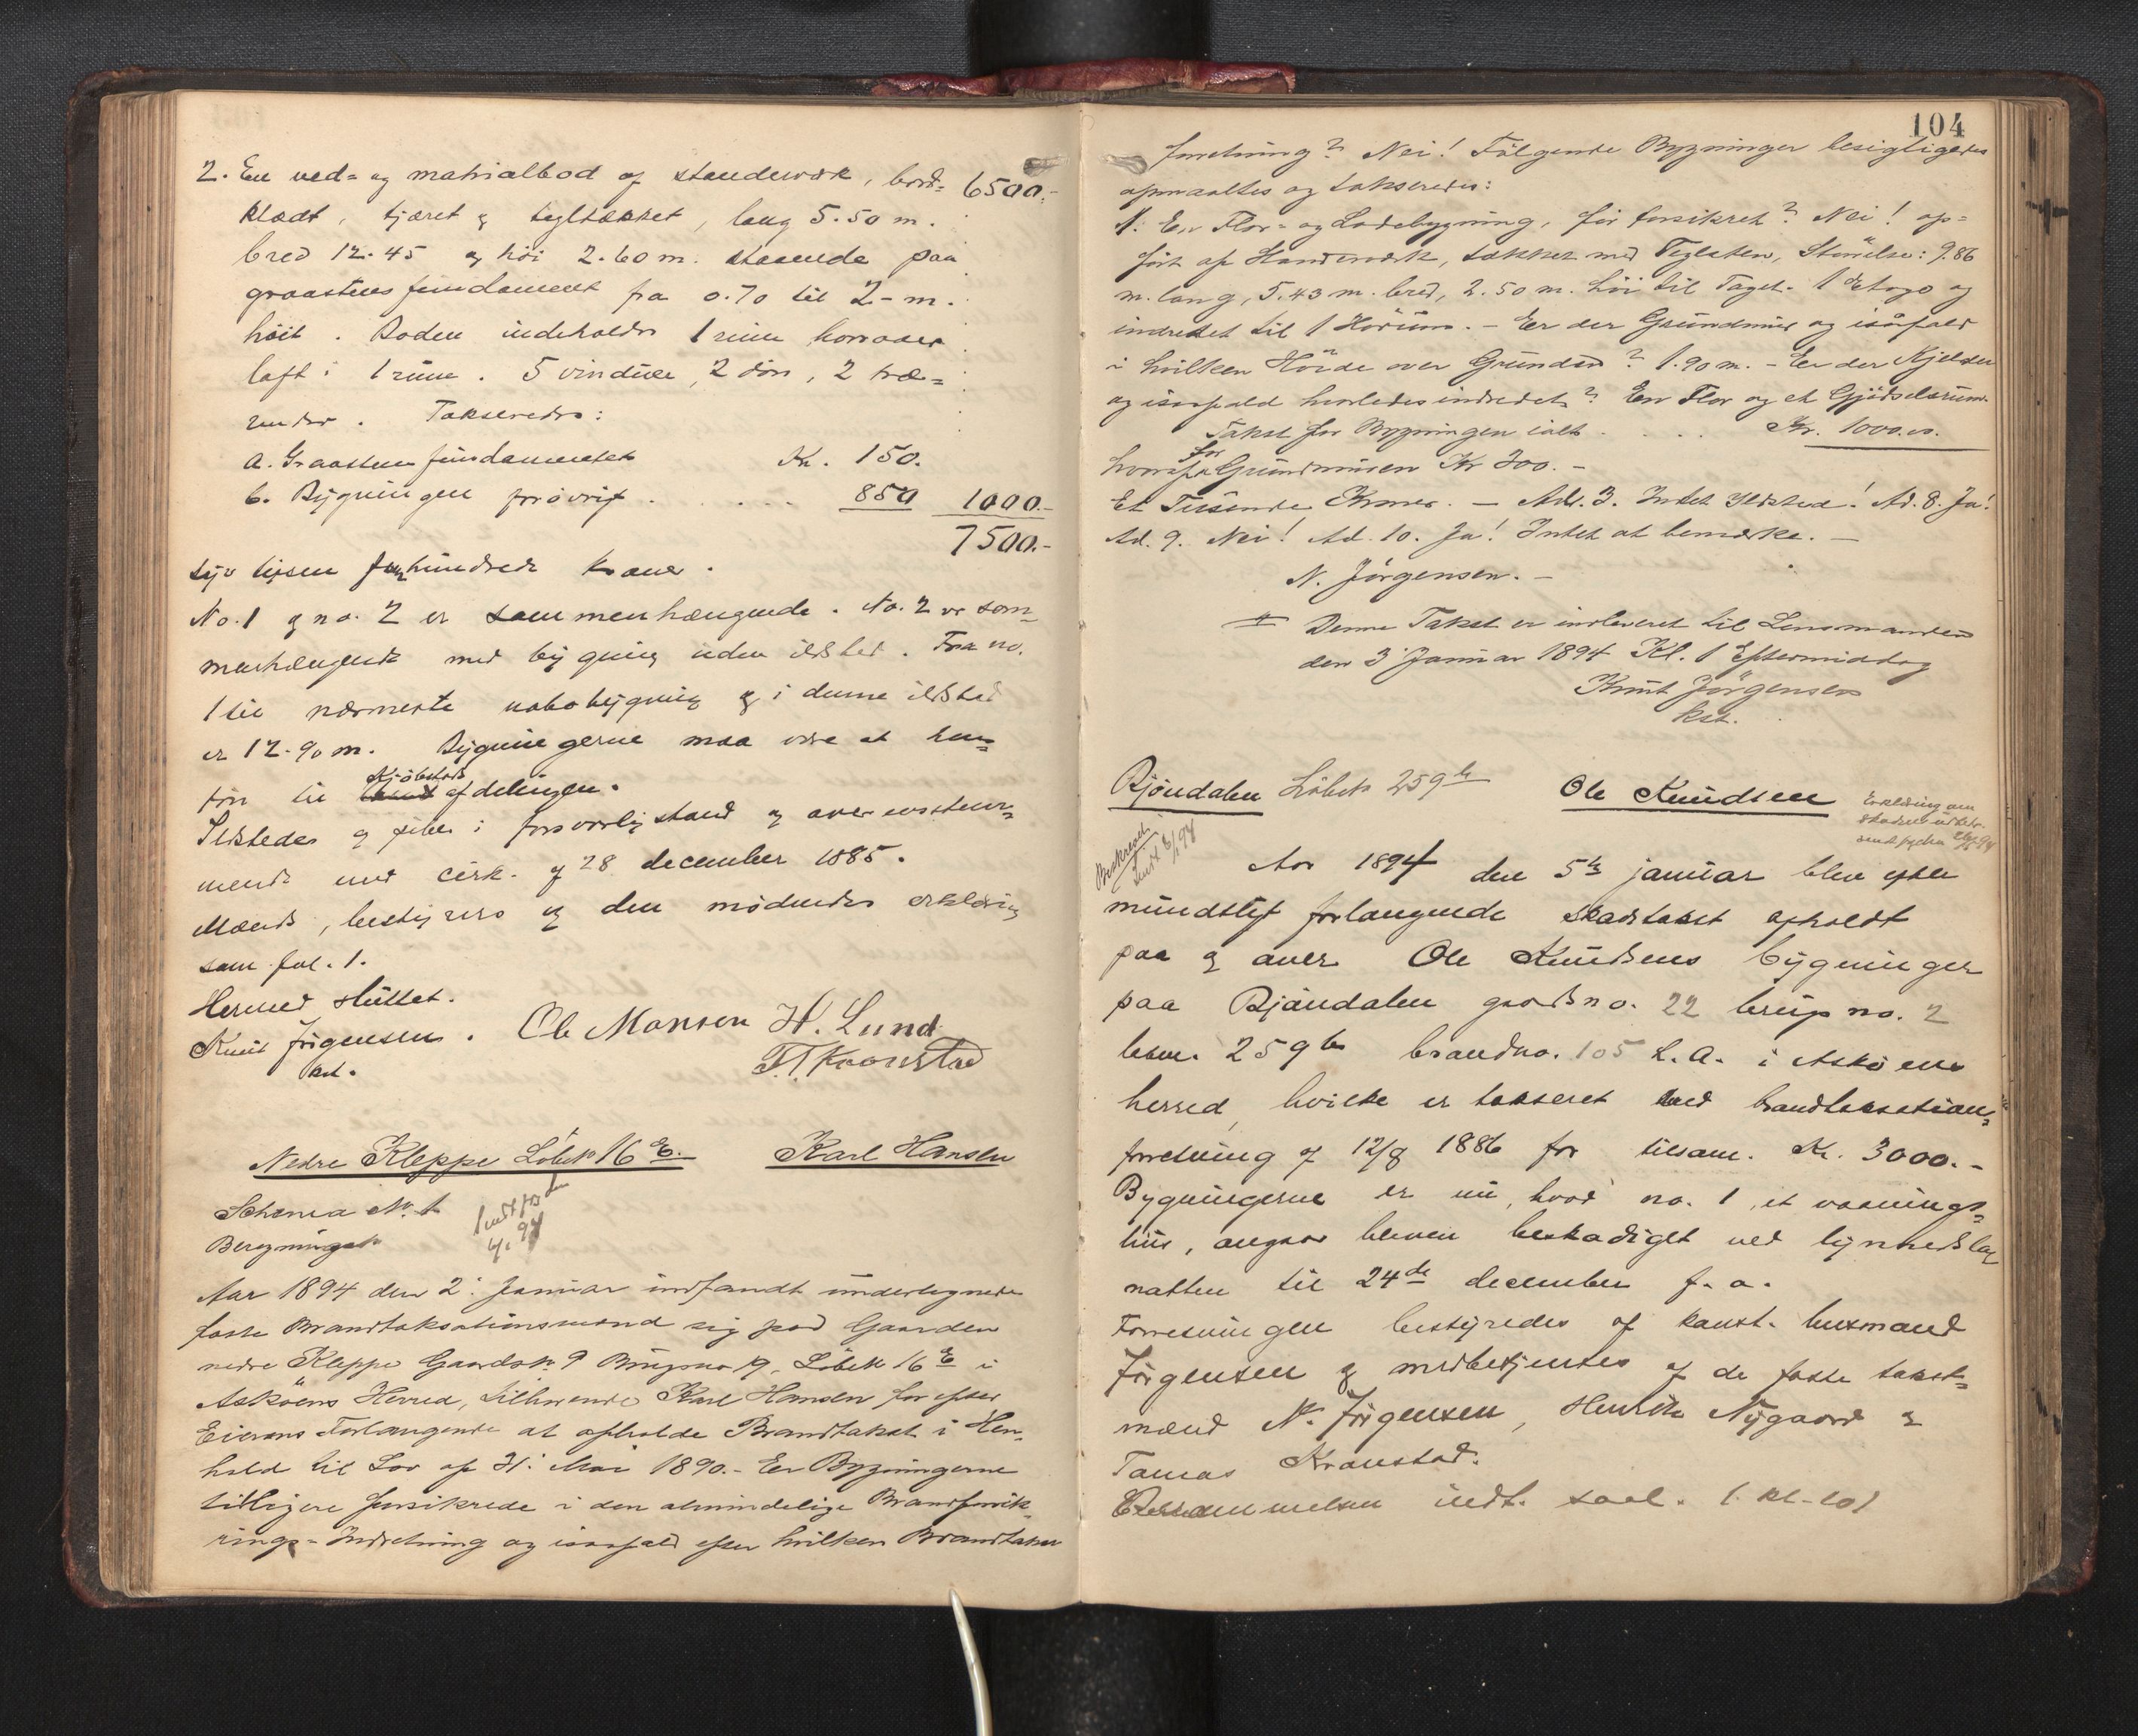 2. En ved- og matrialbod af stenderværk, bord- 6500.-
klædt, tjæret & tegltækket, lang 5.50 m.
bred 12.45 og høi 2.60 m. staaende paa
graastensfundament fra 0.70 til 2- m.
høit. Boden indeholder 1 rum hvorover
loft i 1 rum. 5 vinduer, 2 døre, 2 træ-
render. Takseredes:
a. Graastensfundamentet Kr. 150.
b. Bygningen forøvrigt . . . . 850 1000.-
7500.-
syv tusen femhundrede kroner.
No. 1 og no. 2 er sammenhængende. No. 2 er sam-
menhængende med bygning uden ildsted. Fra no.
1 til nærmeste nabobygning og i denne ildsted
er 12.90 m. Bygningerne maa være at hen-
føre til Kjøbstads afdelingen.
Ildsteder og piber i forsvarlig stand og overensstem-
mende med cirk. af 28 december 1885.
Mænds, bestyrers og den mødendes erklæring
som fol. 1.
Hermed sluttet.
Knut Jørgensen. Ole Monsen H. Lund
kst. T. T. Kraanstad
Nedre Kleppe Löbeno 16 E. Karl Hansen
Schema No. 1
Bergningst
Sendt
94
Aar 1894 den 2. Januar indfandt undertegnede
faste Brandtaksationsmænd sig paa Gaarden
nedre Kleppe Gaardsno 9 Brugsno 19, Löbeno 16 E i
Asköens Herred, tilhørende Karl Hansen for efter
Eierens Forlangende at afholde Brandtakst i Hen-
hold til Lov af 31. Mai 1890.- Er Bygningerne
tidligere forsikrede i den almindelige Brandforsik-
rings-Indretning og isaafald efter hvilken Brandtakst
104
forretning? Nei! Fölgende Bygninger besigtigedes
opmaaltes og takseredes:
1. En Flor- og Ladebygning, för forsikret? Nei! op-
fört af Standerværk, tækket med Teglsten, Störrelse: 9.86
m. lang, 5.43 m. bred, 2.50 m. höi til Taget. 1 Etage og
indredet til 1 Hörum. - Er der Grundmur og isaafald
i hvilken Höide over Grunden? 1.90 m. - Er der Kjelder
og isaafald hvorledes indredet? En Flor og et Gjödselsrum.
Takst for Bygningen ialt . . . . Kr. 1000.00.
hvoraf for Grundmuren Kr 300. -
Et Tusende Kroner. - Ad. 3. Intet Ildsted! Ad. 8. Ja!
Ad. 9. Nei! Ad. 10. Ja! Intet at bemærke. -
N. Jörgensen. -
Denne Takst er indleveret til Lensmanden
den 3. Januar 1894 Kl. 1 Eftermiddag
Knut Jörgensen
kst.
Bjöndalen Löbeno 259 b Ole Knudsen
Erklæring om
skadens udbedr.
94
Beskrevet
Sendt 6/1 94
Aar 1894 den 5te januar blev efter
mundtligt forlangende skadetakst afholdt
paa og over Ole Knudsens bygninger
paa Bjöndalen gaardsno. 22 brugsno. 2
löbeno. 259 b brandno. 105 L. A. i Asköens
herred, hvilke er takseret ved brandtaksations-
forretning af 12/8 1886 for tilsam. Kr. 3000.-
Bygningerne er nu, hvad no. 1, et vaanings-
hus, angaar bleven beskadiget ved lynnedslag
natten til 24de december f. a.
Forretningen bestyredes af konst. lensmand
Jörgensen og medbetjentes af de faste takst-
mænd N. Jörgensen, Henrik Nygaard &
Tomas Kraanstad.